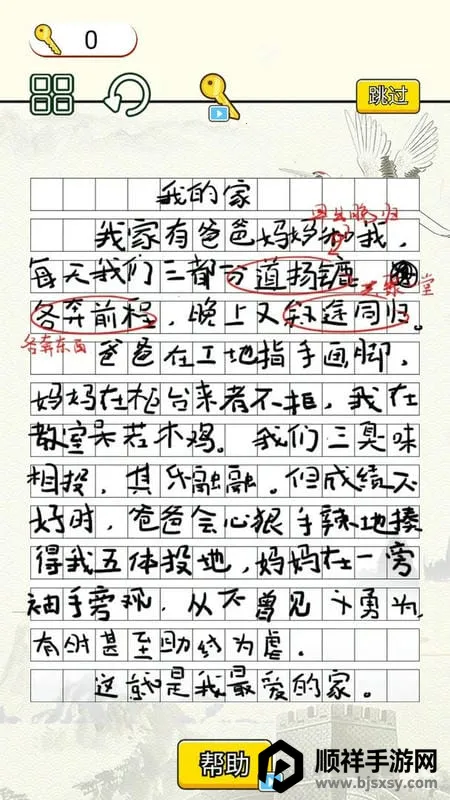 0
跳过
我的家
我家有爸爸妈妈和我，
每天我们三都分道扬镳
各奔前程，晚上又殊途同归。
各奔东西
爸爸在工地指手画脚，
妈妈在柜台来者不拒，我在
教室呆若木鸡。我们三臭味
相投，其乐融融。但成绩不
好时，爸爸会心狠手辣地揍
得我五体投地，妈妈在一旁
袖手旁观，从不曾见义勇为，
有时甚至助纣为虐。
这就是我最爱的家。
帮助
顺祥手游网
www.bjsxsy.com